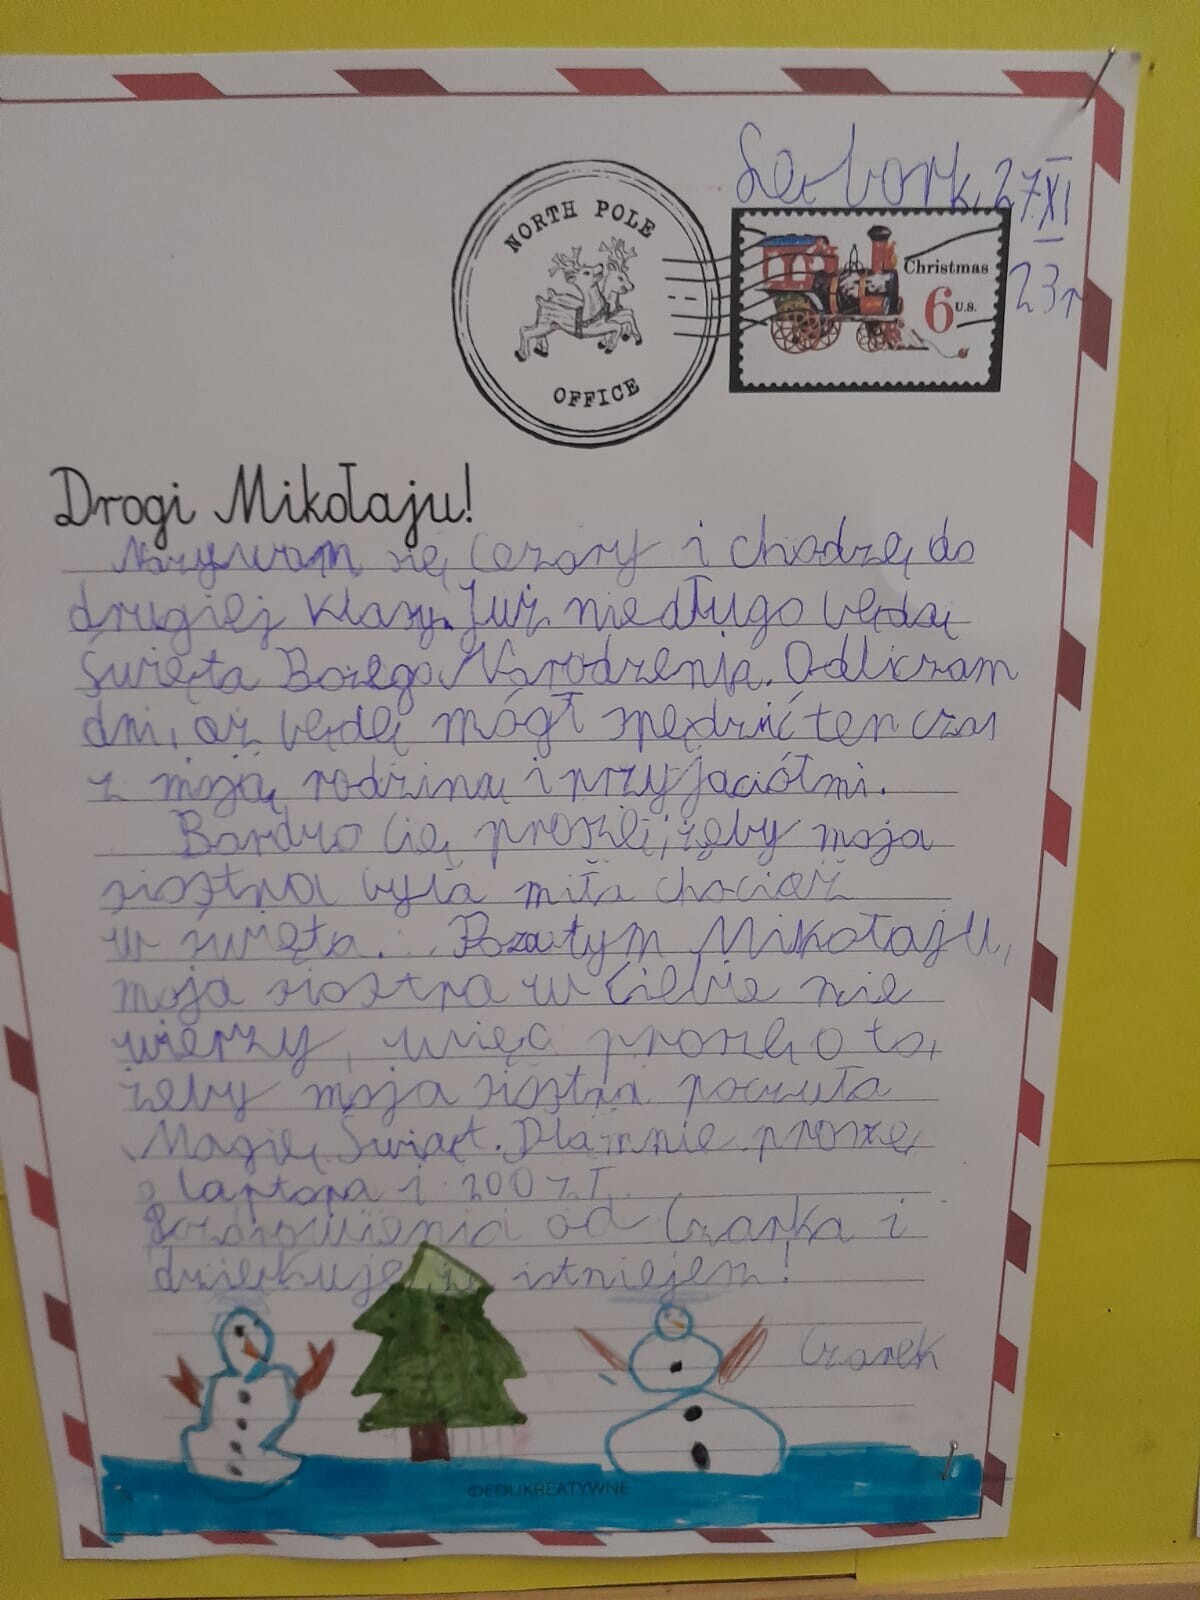 Lębork, 27.XI
23r
NORTH POLE
OFFICE
Christmas
6 U.S.
Drogi Mikołaju!
Nazywam się Cezary i chodzę do
drugiej klasy. Już niedługo będą
Święta Bożego Narodzenia. Odliczam
dni, aż będę mógł spędzić ten czas
z moją rodziną i przyjaciółmi.
Bardzo Cię proszę, żeby moja
siostra była miła chociaż
w święta... Pozatym Mikołaju,
moja siostra w Ciebie nie
wierzy, więc proszę o to,
żeby moja siostra poczuła
Magię Świąt. Dla mnie proszę
o laptopa i 200 zł.
Pozdrowienia od Czarka i
dziękuję że istniejesz!
Czarek
©EDUKREATYWNE